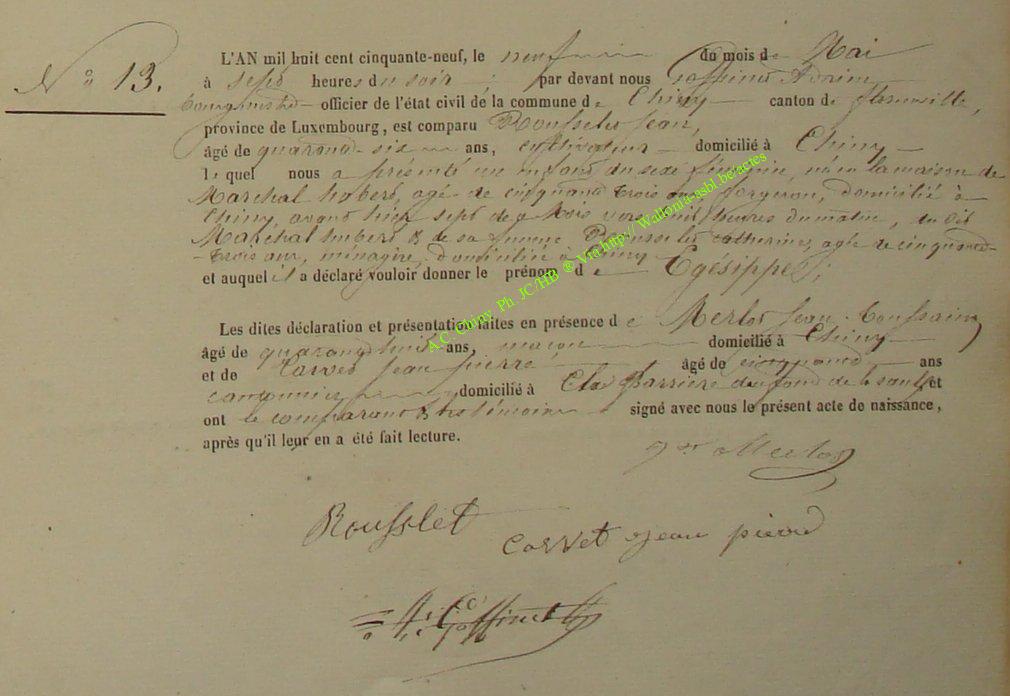 N° 13.
L'AN mil huit cent cinquante-neuf, le neuf du mois de Mai
à sept heures du soir, par devant nous Goffinet
bourgmestre officier de l'état civil de la commune de Chiny canton de florenville,
province de Luxembourg, est comparu Rousselet Jean,
âgé de quarante-six ans, cultivateur domicilié à Chiny
lequel nous a présenté un enfant du sexe féminin, né en la maison de
Maréchal hubert, agé de cinquante trois ans forgeron, domicilié à
Chiny, avant hier sept de ce Mois vers huit heures du matin, du dit
Maréchal hubert & de sa femme Rousselet Catherine, agée de cinquante-
trois ans, ménagère, domiciliée à Chiny
et auquel il a déclaré vouloir donner le prénom de Egésippe;
Les dites déclaration et présentation faites en présence de Merlot Jean-Toussaint
âgé de quarante huit ans, maçon domicilié à Chiny
et de Jean pierre âgé de cinquante ans
cantonnier domicilié à la Barrière du fond de et
ont le comparant & les témoins signé avec nous le présent acte de naissance,
après qu'il leur en a été fait lecture.
Merlot
Rousslet
jean pierre
Goffinet
A.C. Chiny Ph JC/HB ® Via http://Wallonia-asbl.be/actes